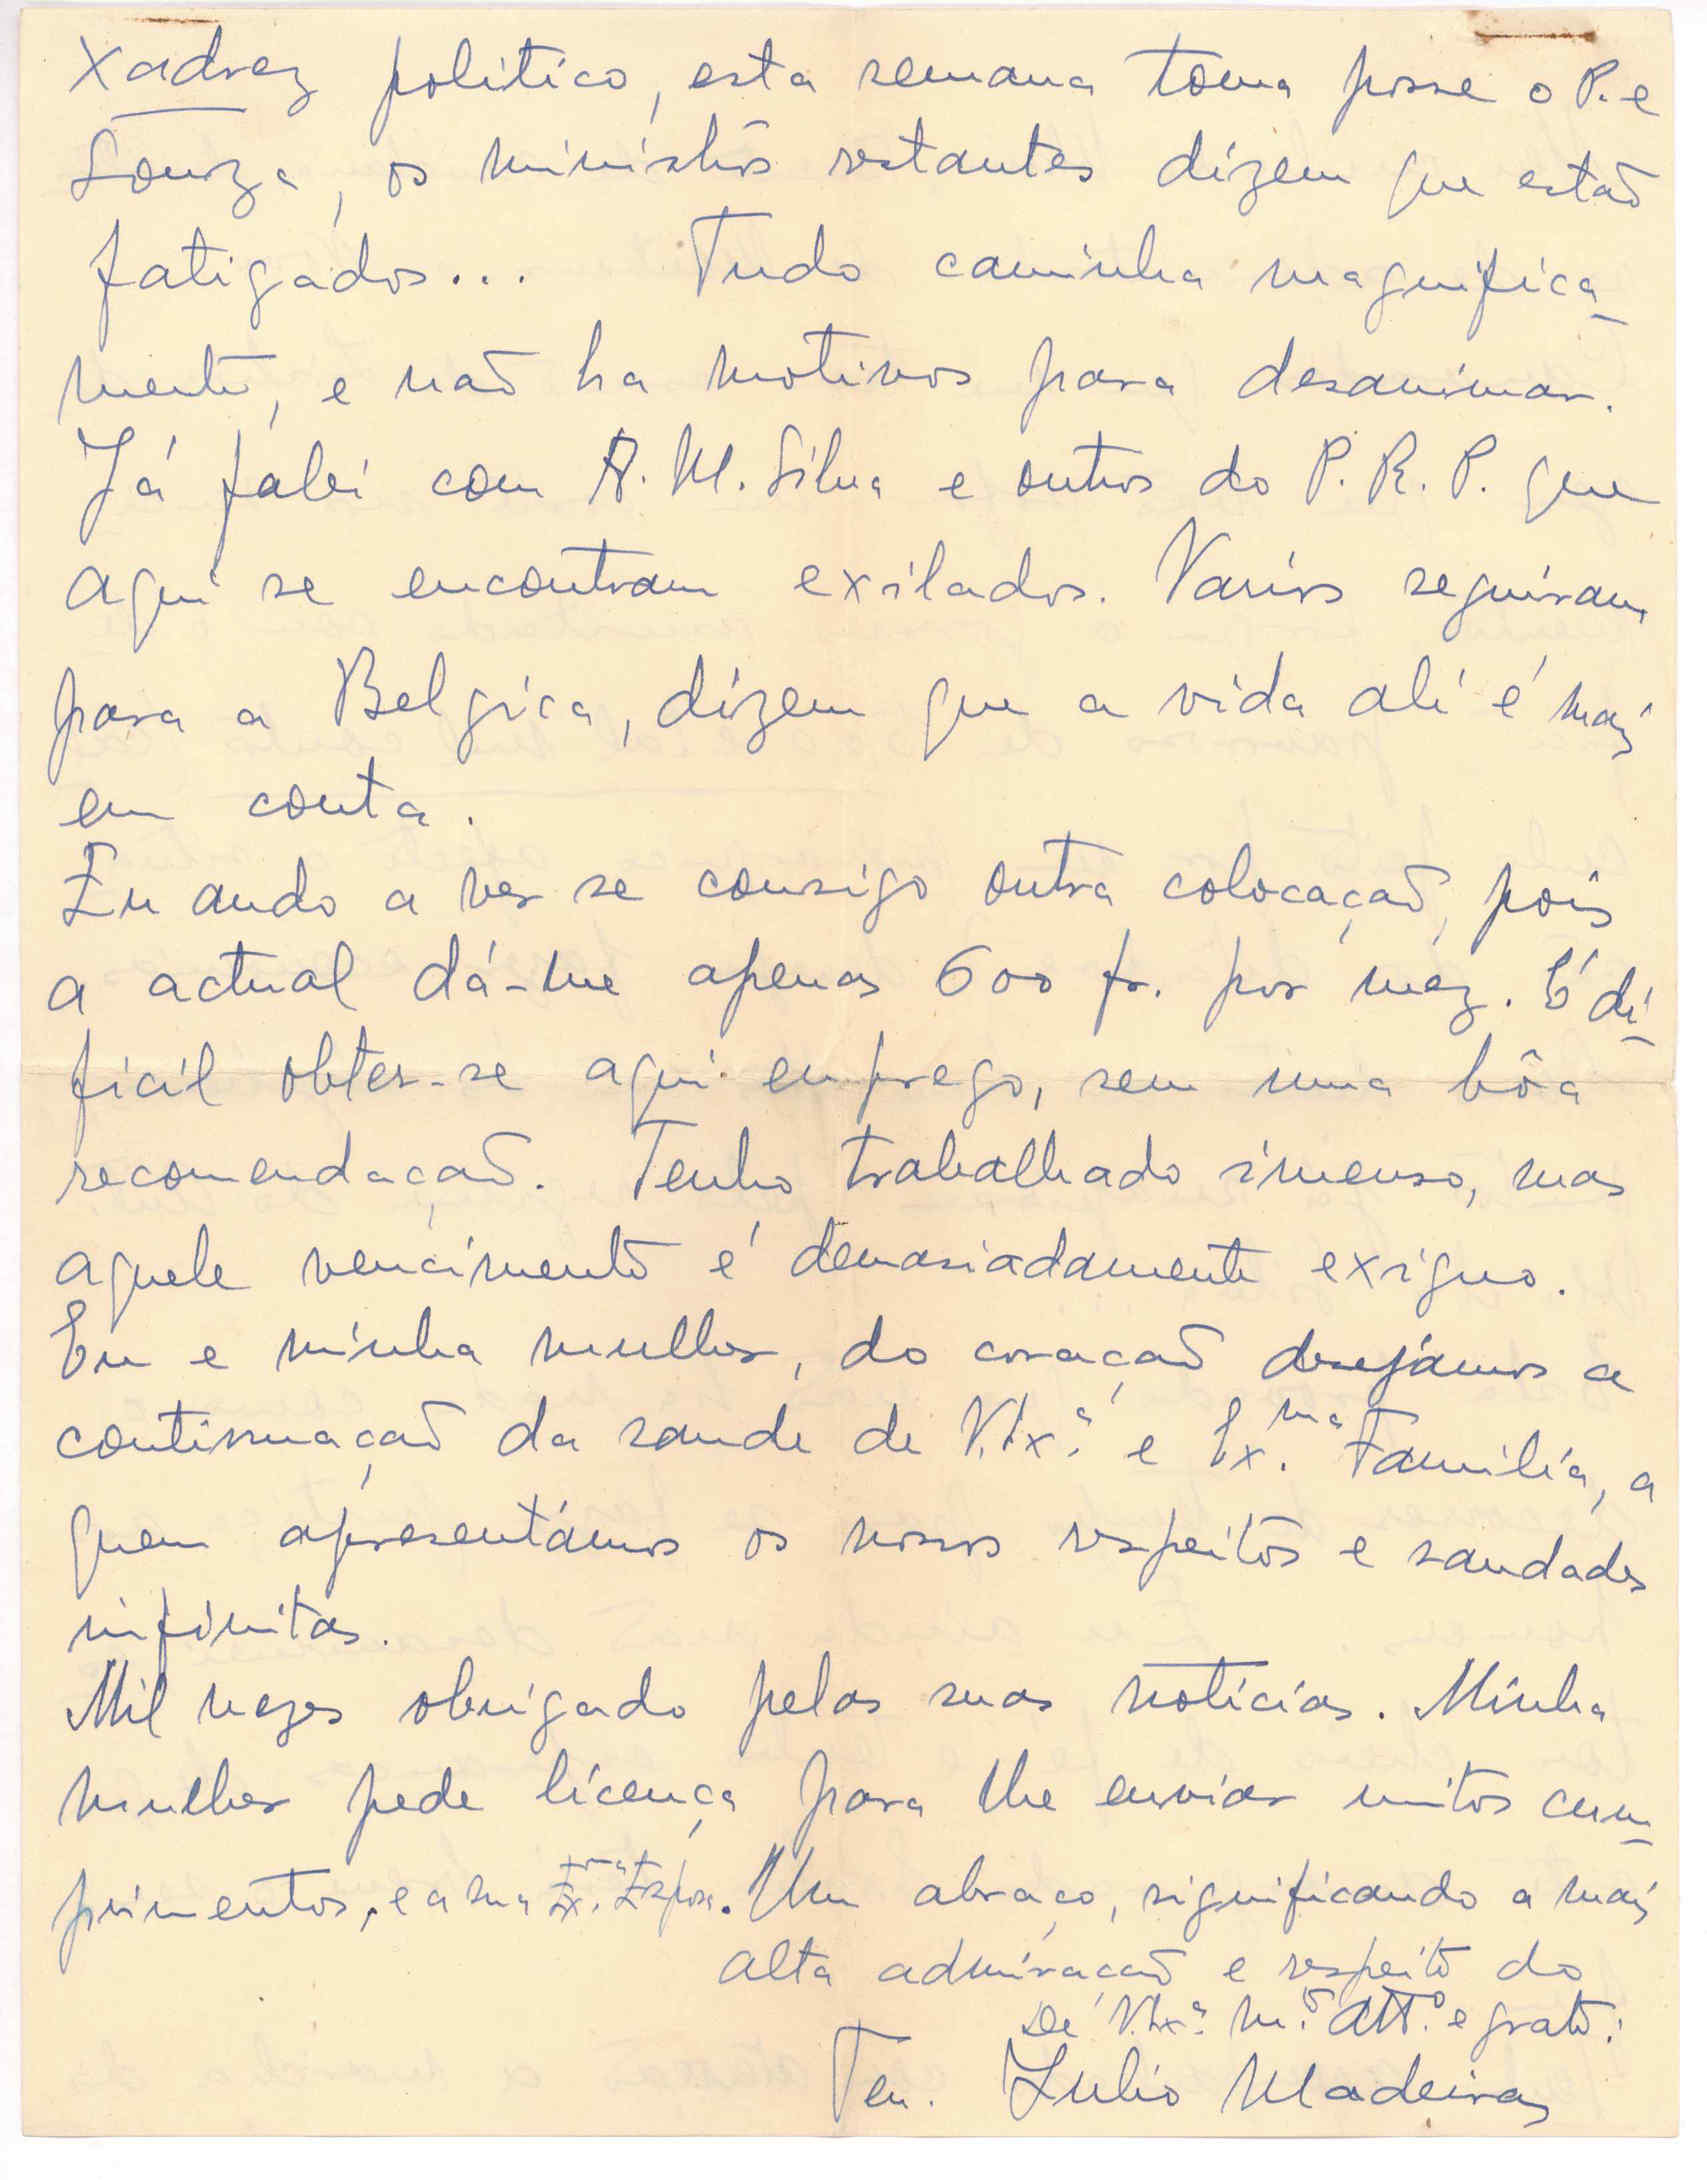 Xadrez politico, esta semana toma posse o P.e
Souza, os ministros restantes dizem que estaõ
fatigados... Tudo caminha magnifica-
mente, e naõ ha motivos para desanimar.
Já falei com A. M. Silva e outros do P. R. P. que
aqui se encontram exilados. Varios seguiram
para a Belgica, dizem que a vida ali é mais
em conta.
Eu ando a ver se consigo outra colocaçaõ, pois
a actual dá-me apenas 600 fr. por mez. É di-
ficil obter-se aqui emprego, sem uma bôa
recomendaçaõ. Tenho trabalhado imenso, mas
aquele vencimento é demasiadamente exiguo.
Eu e minha mulher, do coraçaõ desejámos a
continuaçaõ da saude de V. Ex.ª e Ex.ma Familia, a
quem apresentámos os nossos respeitos e saudades
infinitas.
Mil vezes obrigado pelas suas noticias. Minha
mulher pede licença para lhe enviar muitos cum-
primentos, e a sua Ex.ma Espôsa. Um abraço, significando a mais
alta admiraçaõ e respeito do
De V. Ex.ª m.to att.o e grato:
Ten. Julio Madeira